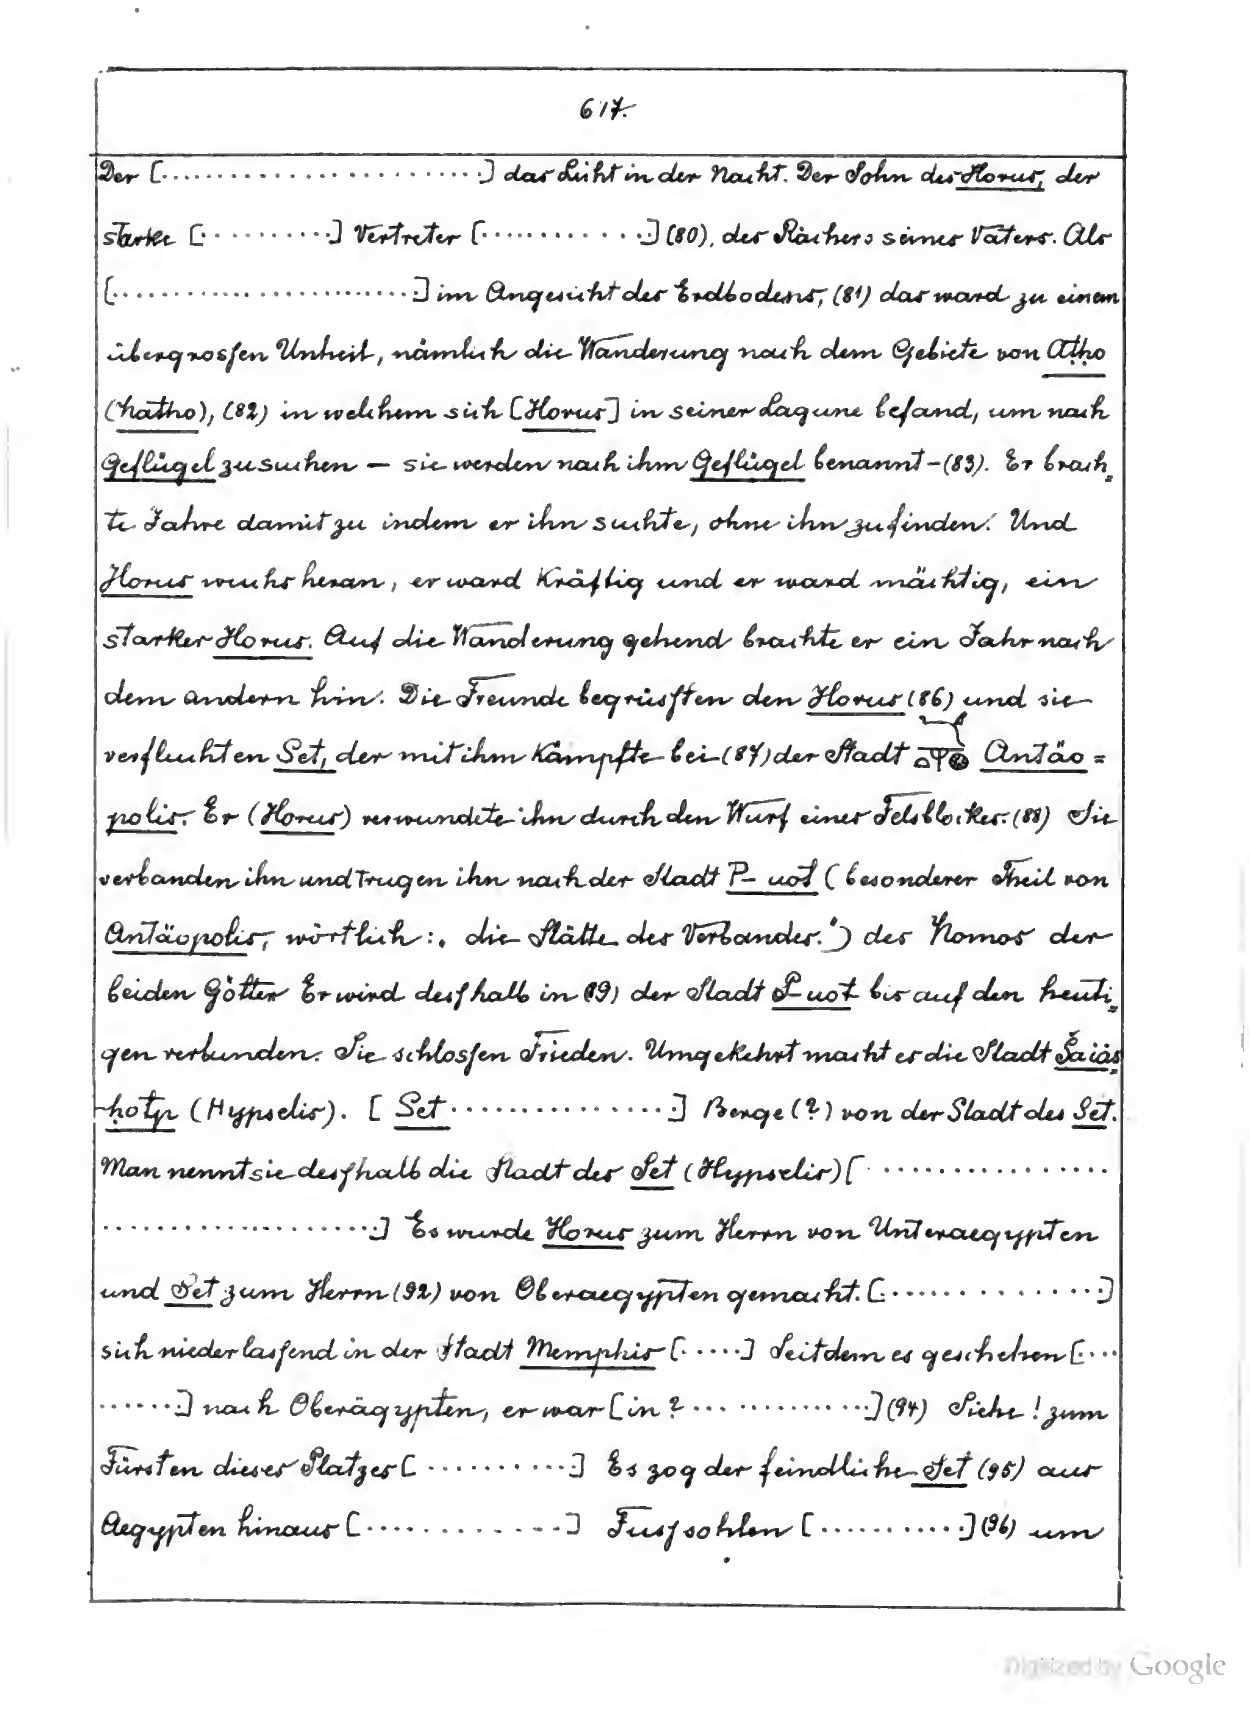 617.
Der [························] das Licht in der Nacht. Der Sohn des Horus, der
starke [··········] Vertreter [············] (80), des Rächers seines Vaters. Als
[························] im Angesicht des Erdbodens, (81) das ward zu einem
übergrossen Unheil, nämlich die Wanderung nach dem Gebiete von Atho
(hatho), (82) in welchem sich [Horus] in seiner Lagune befand, um nach
Geflügel zu suchen — sie werden nach ihm Geflügel benannt - (83). Er brach=
te Jahre damit zu indem er ihn suchte, ohne ihn zu finden. Und
Horus wuchs heran, er ward kräftig und er ward mächtig, ein
starker Horus. Auf die Wanderung gehend brachte er ein Jahr nach
dem andern hin. Die Freunde begrüsften den Horus (86) und sie
verfluchten Set, der mit ihm kämpfte bei (87) der Stadt Antäo=
polis. Er (Horus) verwundete ihn durch den Wurf eines Felsblockes. (88) Sie
verbanden ihn und trugen ihn nach der Stadt P-uot (besonderer Theil von
Antäopolis, wörtlich: „die Stätte des Verbandes.“) des Nomos der
beiden Götter Er wird desfhalb in (89) der Stadt P-uot bis auf den heuti=
gen verbunden. Sie schlosfen Frieden. Umgekehrt macht es die Stadt Šaïàs
-ḥotp (Hypselis). [Set ···············] Berge (?) von der Stadt des Set.
Man nennt sie desfhalb die Stadt des Set (Hypselis) [················
····················] Es wurde Horus zum Herrn von Unteraegypten
und Set zum Herrn (92) von Oberaegypten gemacht. [···············]
sich niederlasfend in der Stadt Memphis [·····] Seitdem es geschehen [···
·······] nach Oberägypten, er war [in ? ··············] (94) Siehe! zum
Fürsten dieses Platzes [···········] Es zog der feindliche Set (95) aus
Aegypten hinaus [·············] Fusfsohlen [···········] (96) um
Digitized by Google